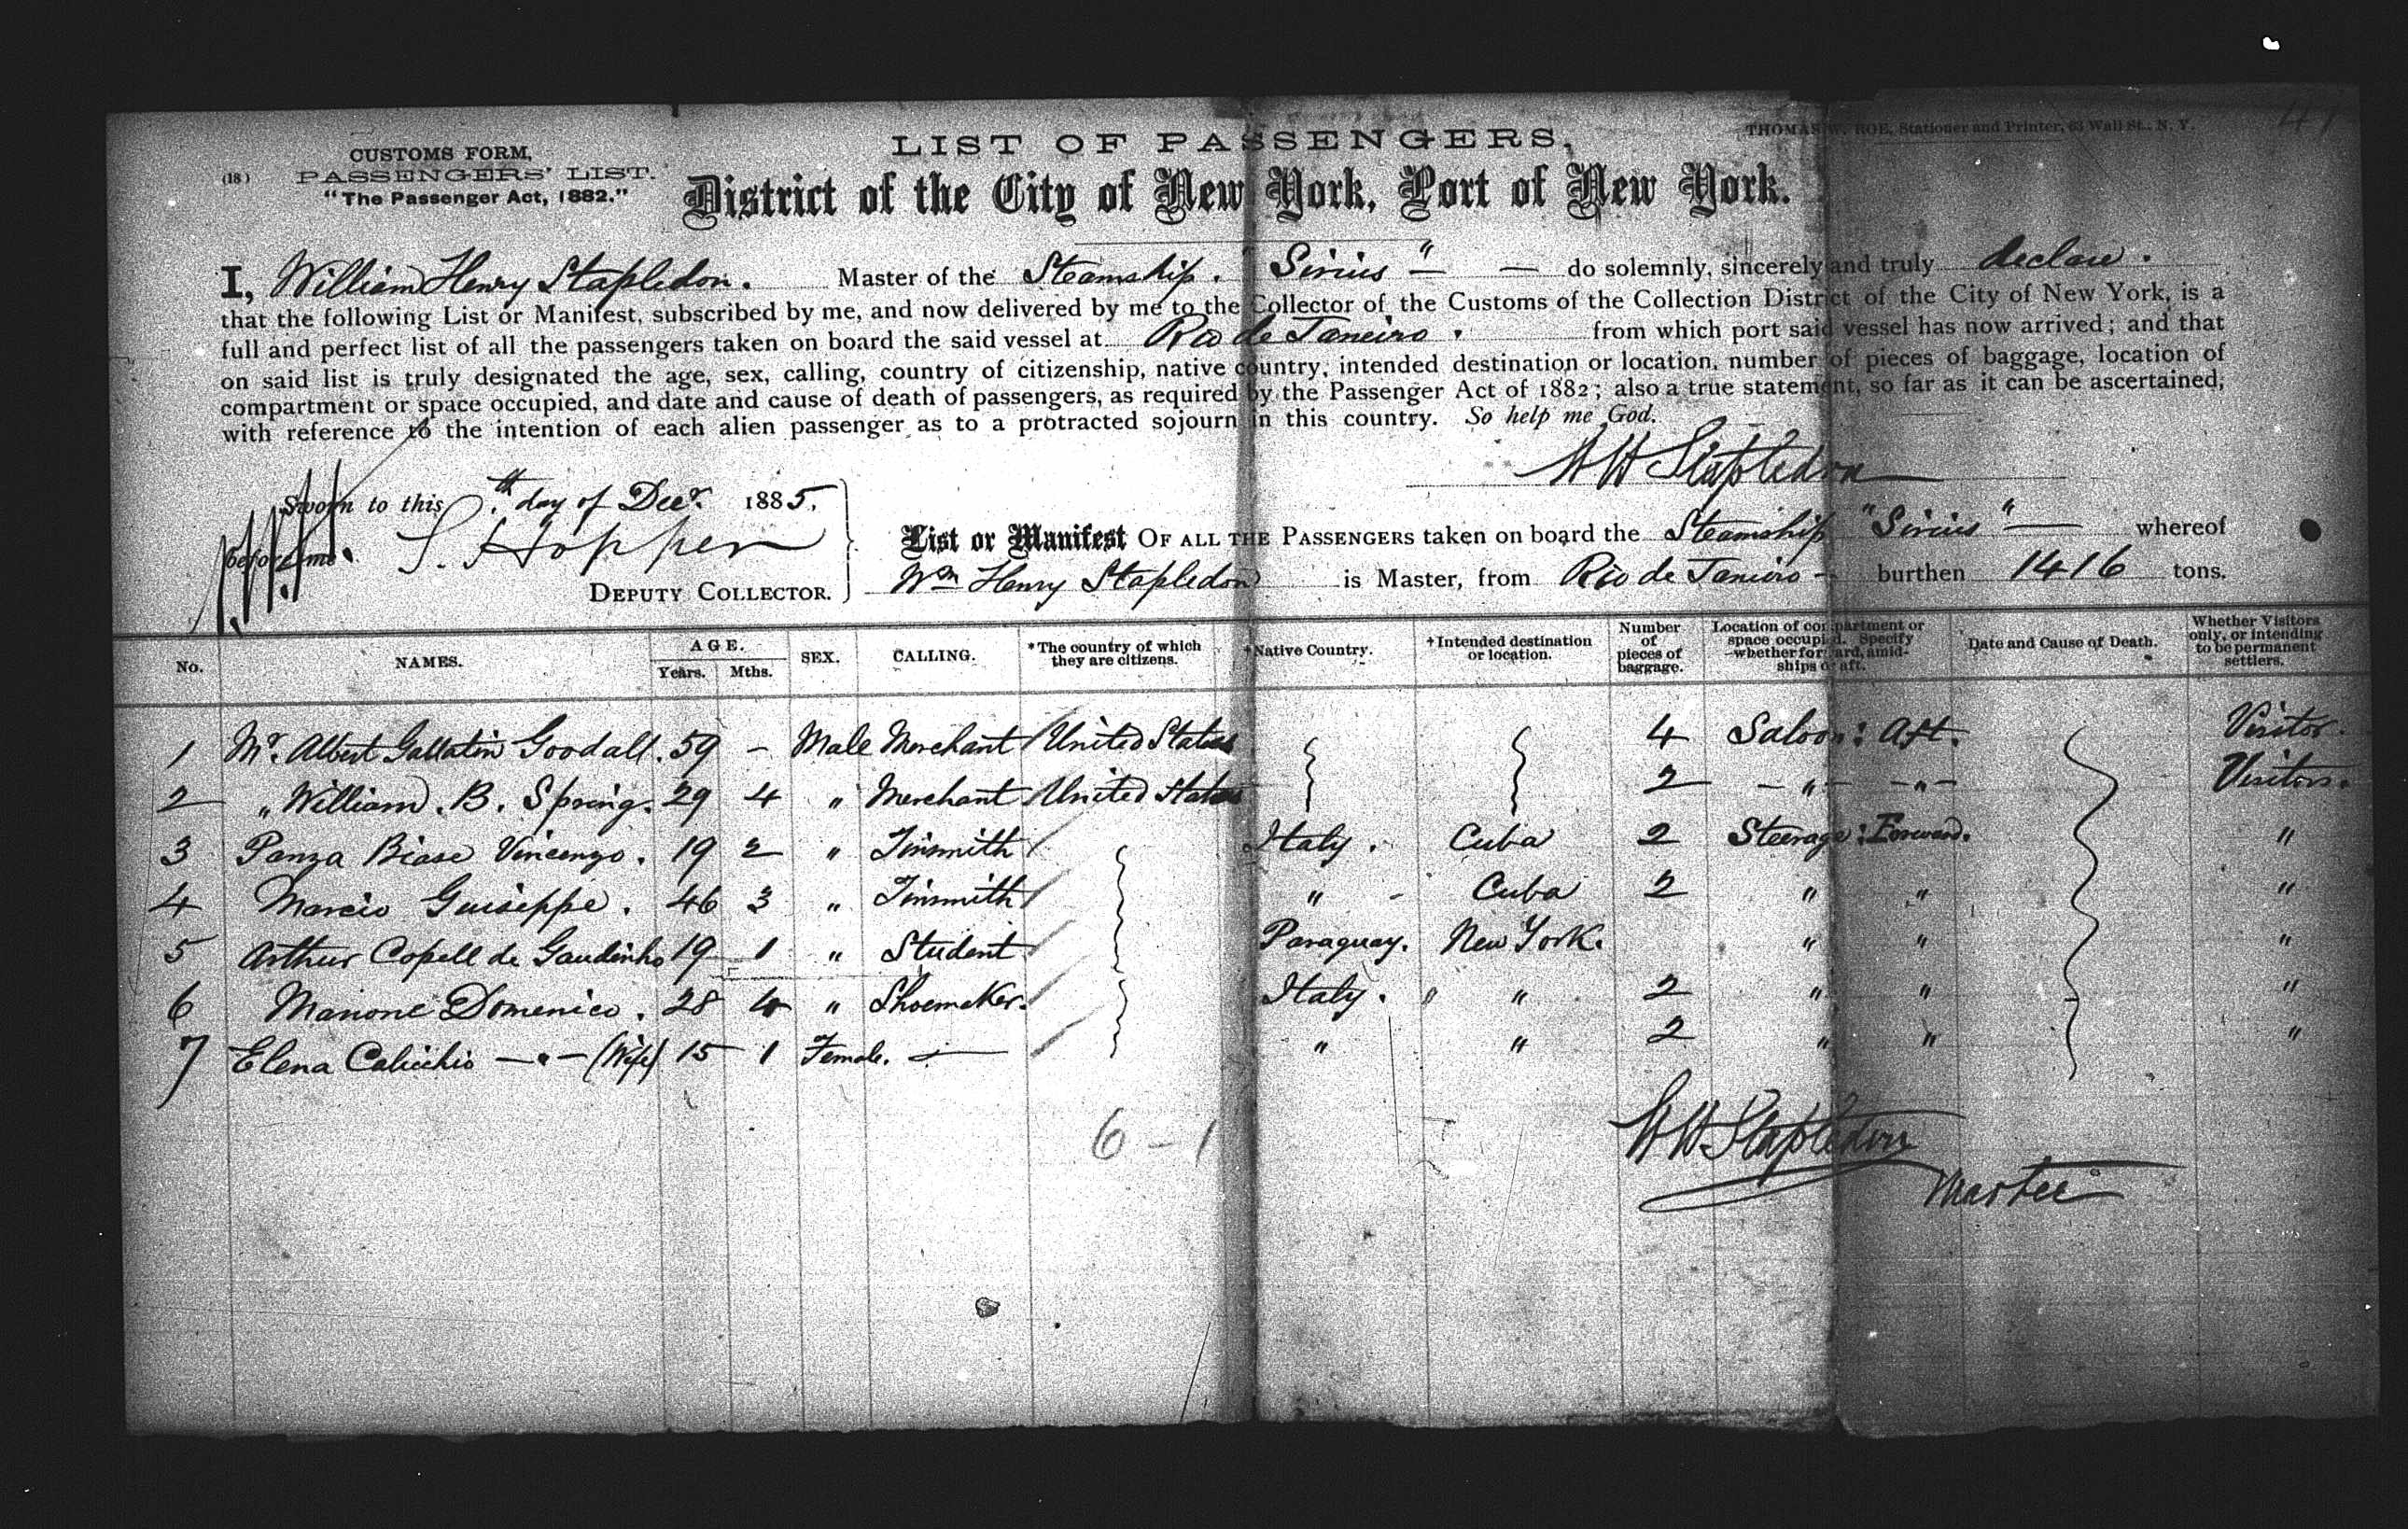 THOMAS W. ROE, Stationer and Printer, 63 Wall St., N. Y.
LIST OF PASSENGERS,
CUSTOMS FORM,
(18) PASSENGERS' LIST.
"The Passenger Act, 1882."
District of the City of New York, Port of New York.
I, William Henry Stapledon. Master of the Steamship. "Sirius" — do solemnly, sincerely and truly declare.
that the following List or Manifest, subscribed by me, and now delivered by me to the Collector of the Customs of the Collection District of the City of New York, is a
full and perfect list of all the passengers taken on board the said vessel at Rio de Janeiro. from which port said vessel has now arrived; and that
on said list is truly designated the age, sex, calling, country of citizenship, native country, intended destination or location, number of pieces of baggage, location of
compartment or space occupied, and date and cause of death of passengers, as required by the Passenger Act of 1882; also a true statement, so far as it can be ascertained,
with reference to the intention of each alien passenger as to a protracted sojourn in this country. So help me God.
W H Stapledon
Sworn to this th day of Decr 1885,
before me. S. Hopper
DEPUTY COLLECTOR.
List or Manifest OF ALL THE PASSENGERS taken on board the Steamship "Sirius" — whereof
Wm Henry Stapledon is Master, from Rio de Janeiro — burthen 1416 tons.
No. NAMES. AGE. Years. Mths. SEX. CALLING. *The country of which they are citizens. †Native Country. †Intended destination or location. Number of pieces of baggage. Location of compartment or space occupied. Specify whether forward, amidships or aft. Date and Cause of Death. Whether Visitors only, or intending to be permanent settlers.
1 Mr. Albert Gallatin Goodall. 59 — Male Merchant United States 4 Saloon: Aft. Visitor.
2 " William. B. Spring. 29 4 " Merchant United States 2 — " — — " — Visitors.
3 Panza Biase Vincenzo. 19 2 " Tinsmith Italy. Cuba 2 Steerage: Forward. "
4 Marcio Guiseppe. 46 3 " Tinsmith " Cuba 2 " " "
5 Arthur Copell de Gaudinho 19 1 " Student Paraguay. New York. " " "
6 Manone Domenico. 28 4 " Shoemaker. Italy. " 2 " " "
7 Elena Calicchio — " — (Wife) 15 1 Female. — " " 2 " " "
6 - 1
W H Stapledon
Master